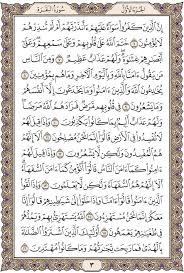 الجزء الأول سورة البقرة
إِنَّ ٱلَّذِينَ كَفَرُوا۟ سَوَآءٌ عَلَيْهِمْ ءَأَنذَرْتَهُمْ أَمْ لَمْ تُنذِرْهُمْ
لَا يُؤْمِنُونَ ٦ خَتَمَ ٱللَّهُ عَلَىٰ قُلُوبِهِمْ وَعَلَىٰ سَمْعِهِمْ وَعَلَىٰٓ
أَبْصَـٰرِهِمْ غِشَـٰوَةٌ وَلَهُمْ عَذَابٌ عَظِيمٌ ٧ وَمِنَ ٱلنَّاسِ
مَن يَقُولُ ءَامَنَّا بِٱللَّهِ وَبِٱلْيَوْمِ ٱلْـَٔاخِرِ وَمَا هُم بِمُؤْمِنِينَ ٨
يُخَـٰدِعُونَ ٱللَّهَ وَٱلَّذِينَ ءَامَنُوا۟ وَمَا يَخْدَعُونَ إِلَّآ أَنفُسَهُمْ
وَمَا يَشْعُرُونَ ٩ فِى قُلُوبِهِم مَّرَضٌ فَزَادَهُمُ ٱللَّهُ مَرَضًا
وَلَهُمْ عَذَابٌ أَلِيمٌۢ بِمَا كَانُوا۟ يَكْذِبُونَ ١٠ وَإِذَا قِيلَ لَهُمْ
لَا تُفْسِدُوا۟ فِى ٱلْأَرْضِ قَالُوٓا۟ إِنَّمَا نَحْنُ مُصْلِحُونَ ١١ أَلَآ إِنَّهُمْ
هُمُ ٱلْمُفْسِدُونَ وَلَـٰكِن لَّا يَشْعُرُونَ ١٢ وَإِذَا قِيلَ لَهُمْ ءَامِنُوا۟
كَمَآ ءَامَنَ ٱلنَّاسُ قَالُوٓا۟ أَنُؤْمِنُ كَمَآ ءَامَنَ ٱلسُّفَهَآءُ أَلَآ
إِنَّهُمْ هُمُ ٱلسُّفَهَآءُ وَلَـٰكِن لَّا يَعْلَمُونَ ١٣ وَإِذَا لَقُوا۟
ٱلَّذِينَ ءَامَنُوا۟ قَالُوٓا۟ ءَامَنَّا وَإِذَا خَلَوْا۟ إِلَىٰ شَيَـٰطِينِهِمْ قَالُوٓا۟ إِنَّا
مَعَكُمْ إِنَّمَا نَحْنُ مُسْتَهْزِءُونَ ١٤ ٱللَّهُ يَسْتَهْزِئُ بِهِمْ وَيَمُدُّهُمْ
فِى طُغْيَـٰنِهِمْ يَعْمَهُونَ ١٥ أُو۟لَـٰٓئِكَ ٱلَّذِينَ ٱشْتَرَوُا۟ ٱلضَّلَـٰلَةَ
بِٱلْهُدَىٰ فَمَا رَبِحَت تِّجَـٰرَتُهُمْ وَمَا كَانُوا۟ مُهْتَدِينَ ١٦
٣